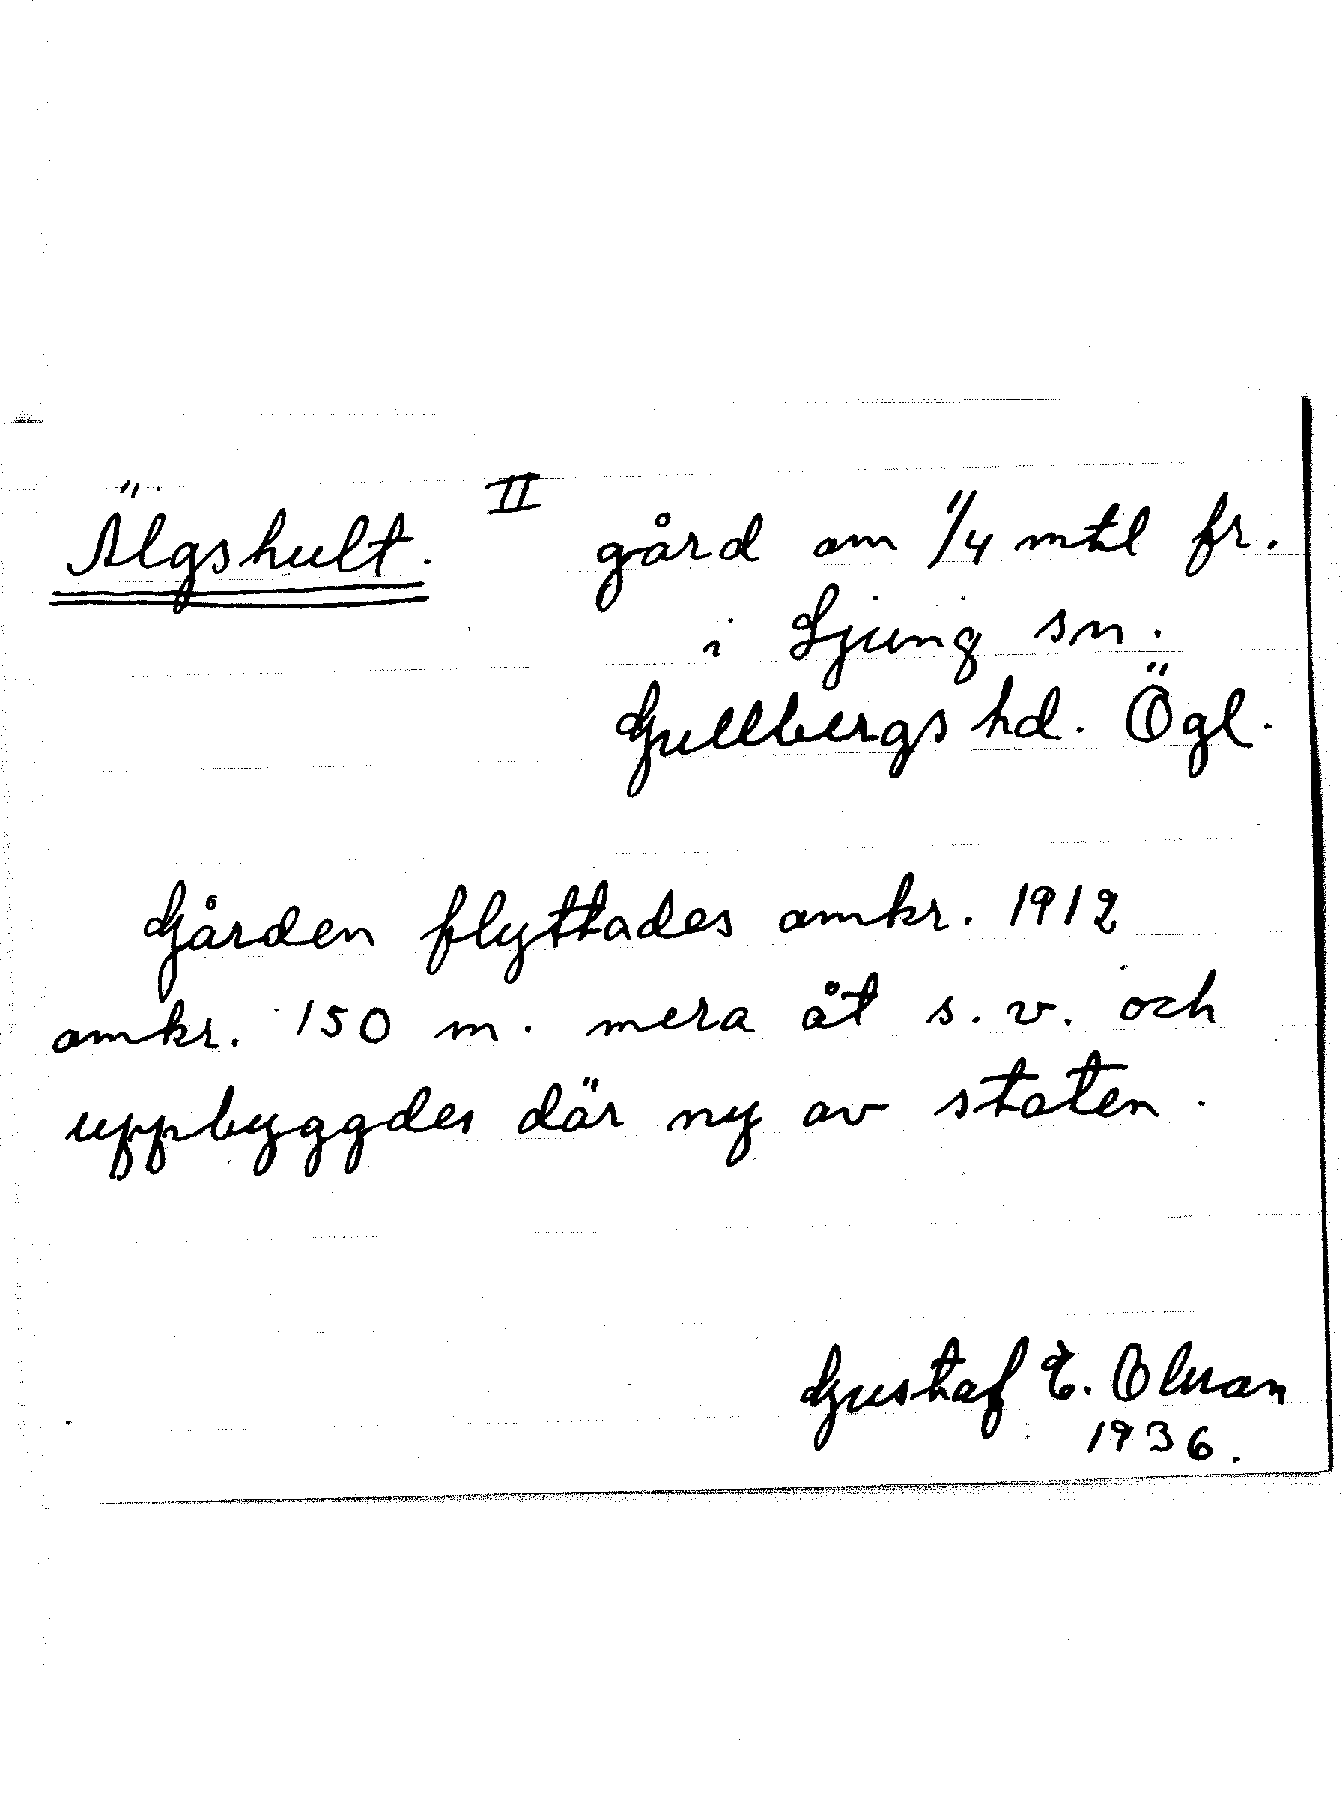 Älgshult. II gård om 1/4 mtl fr.
i Ljung sn.
Gullbergs hd. Ögl.
Gården flyttades omkr. 1912
omkr. 150 m. mera åt s. v. och
uppbyggdes där ny av staten.
Gustaf E. Olsson
1936.